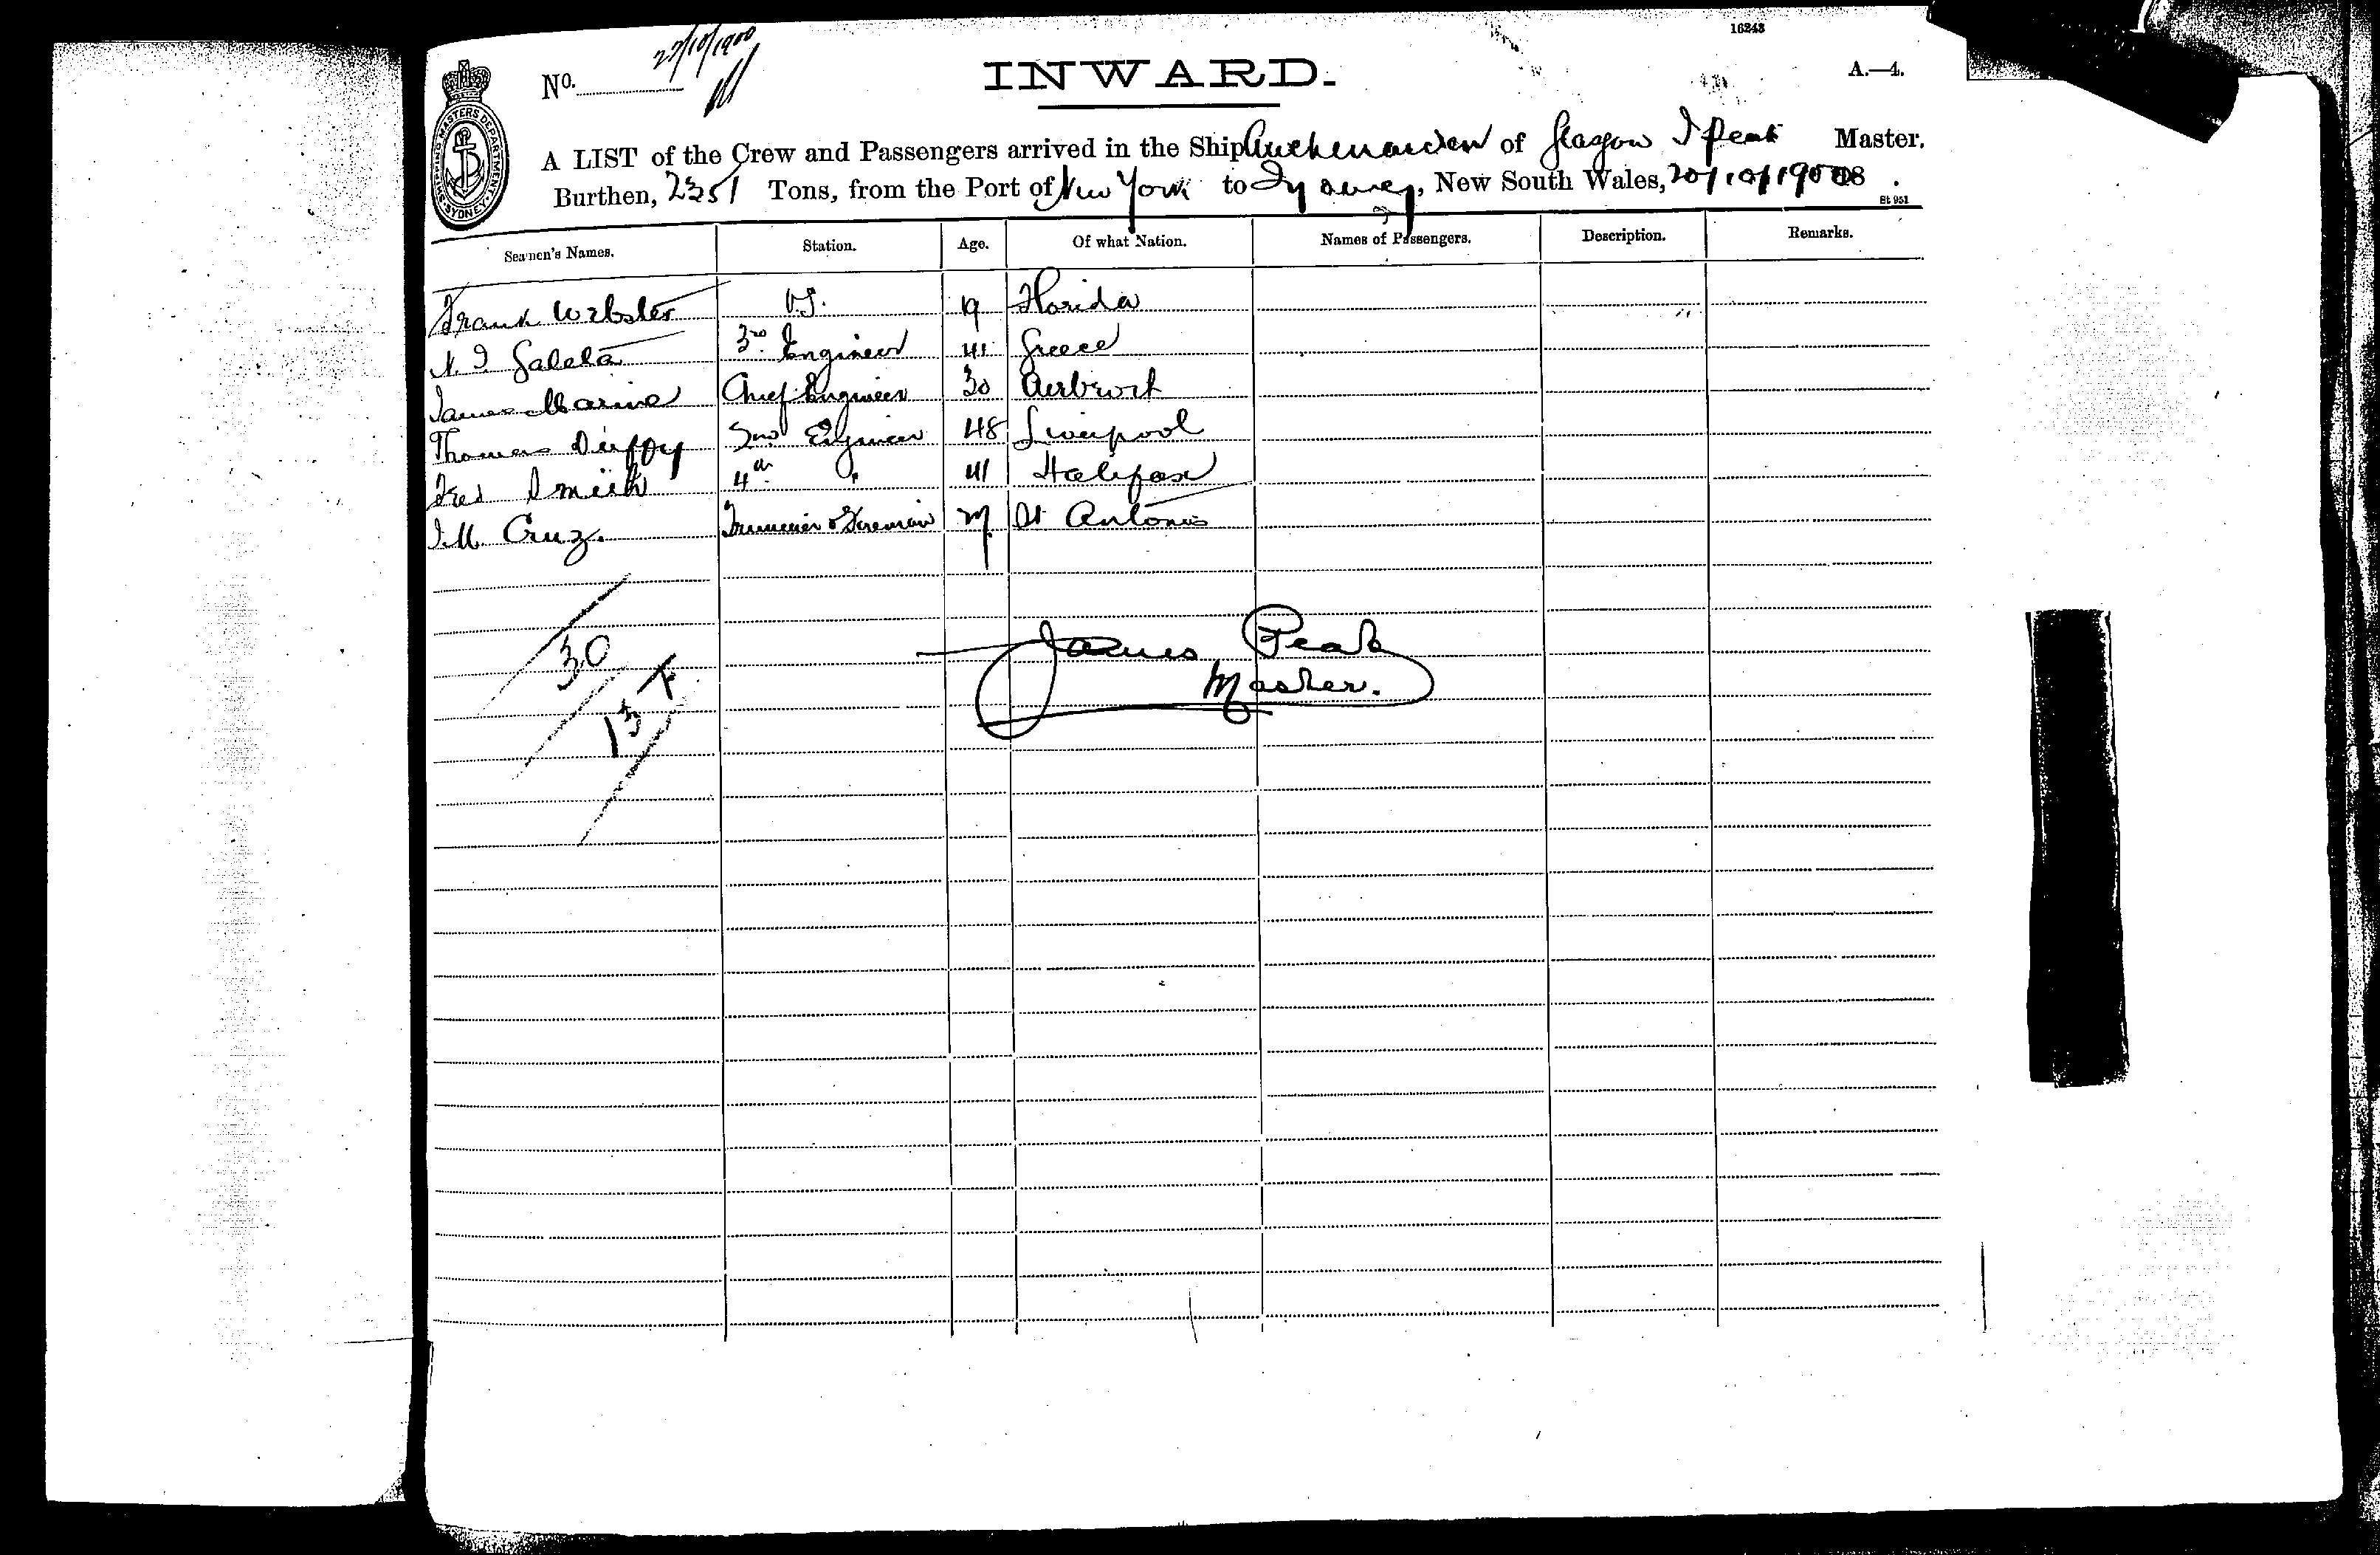 16243
22/10/1900
No.
INWARD.
A.—4.
SHIPPING MASTERS DEPARTMENT SYDNEY
A LIST of the Crew and Passengers arrived in the Ship Auchenarden of Glasgow J Peak Master.
Burthen, 2351 Tons, from the Port of New York to Sydney, New South Wales, 20/10/1900
8t 951
Seamen's Names. Station. Age. Of what Nation. Names of Passengers. Description. Remarks.
Frank Webster O.S. 19 Florida
N. I. Galeta 3rd Engineer 41 Greece
James Marine Chief Engineer 30
Thomas Duffy 2nd Engineer 48 Liverpool
Fred Smith 4th " 41 Halifax
J.M. Cruz. Fireman St Antonio
30
James Peak
13
Master.